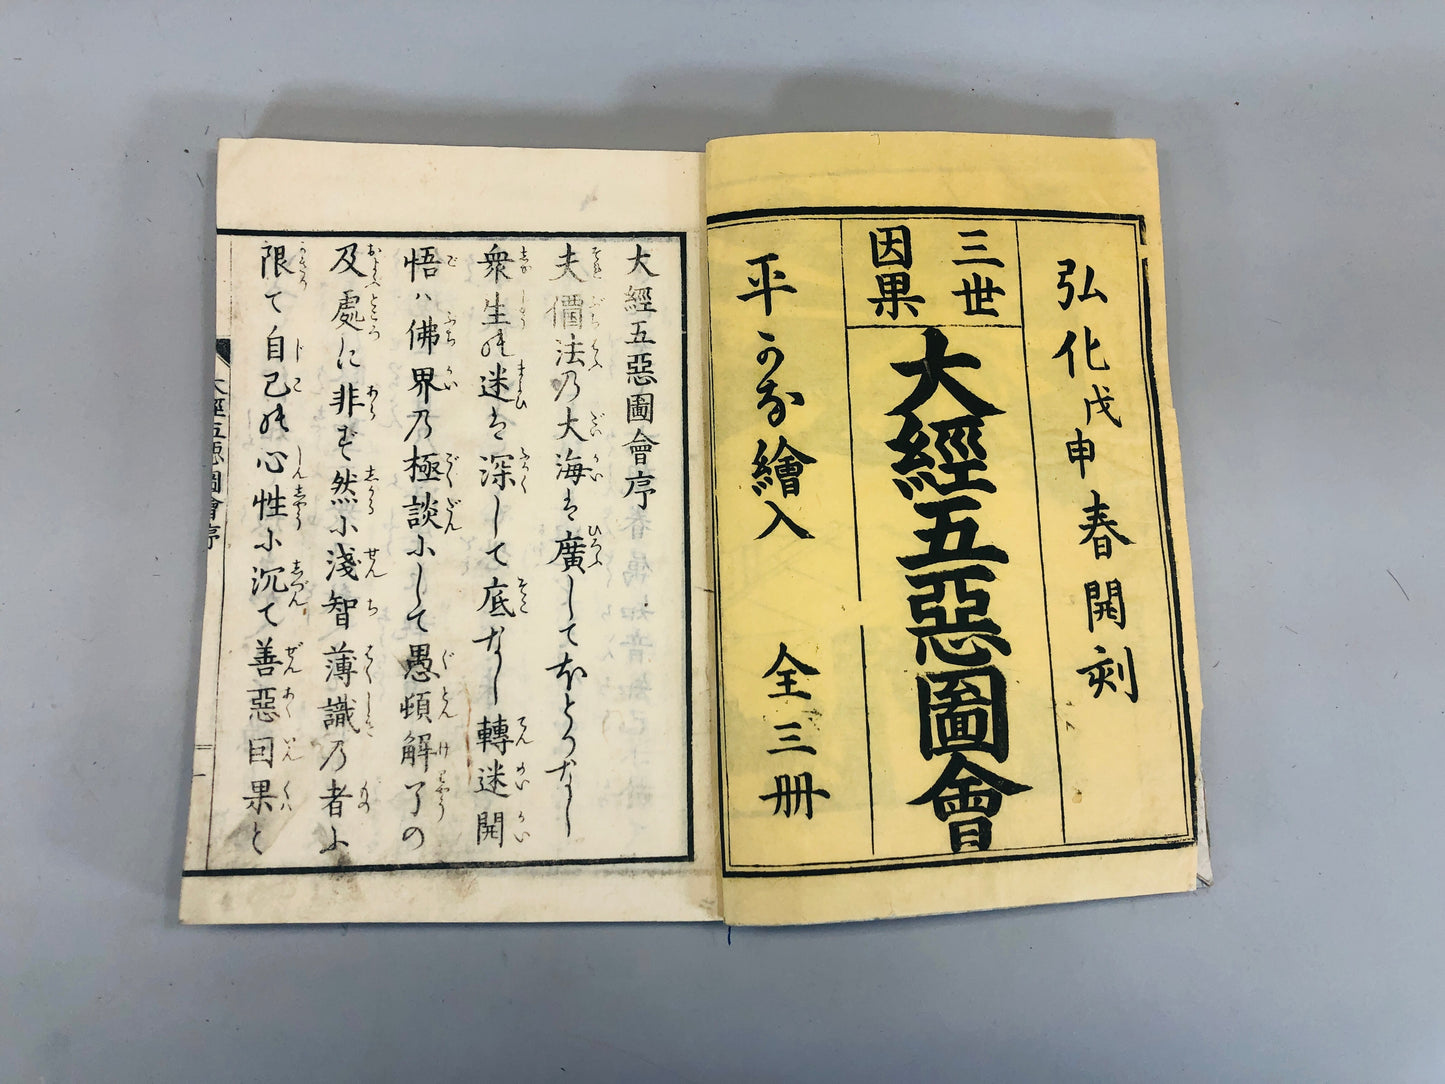 弘化戊申春開刻
三世
因果
大經五惡圖會
平かな繪入
全三册
大經五惡圖會序
夫佛法乃大海は廣してほとりなし
衆生の迷は深して底なし轉迷開
悟ハ佛界乃極談にして愚頓解了の
及處に非ず然に淺智薄識乃者よ
限て自己の心性に沉て善惡因果と
大經五惡圖會序
一